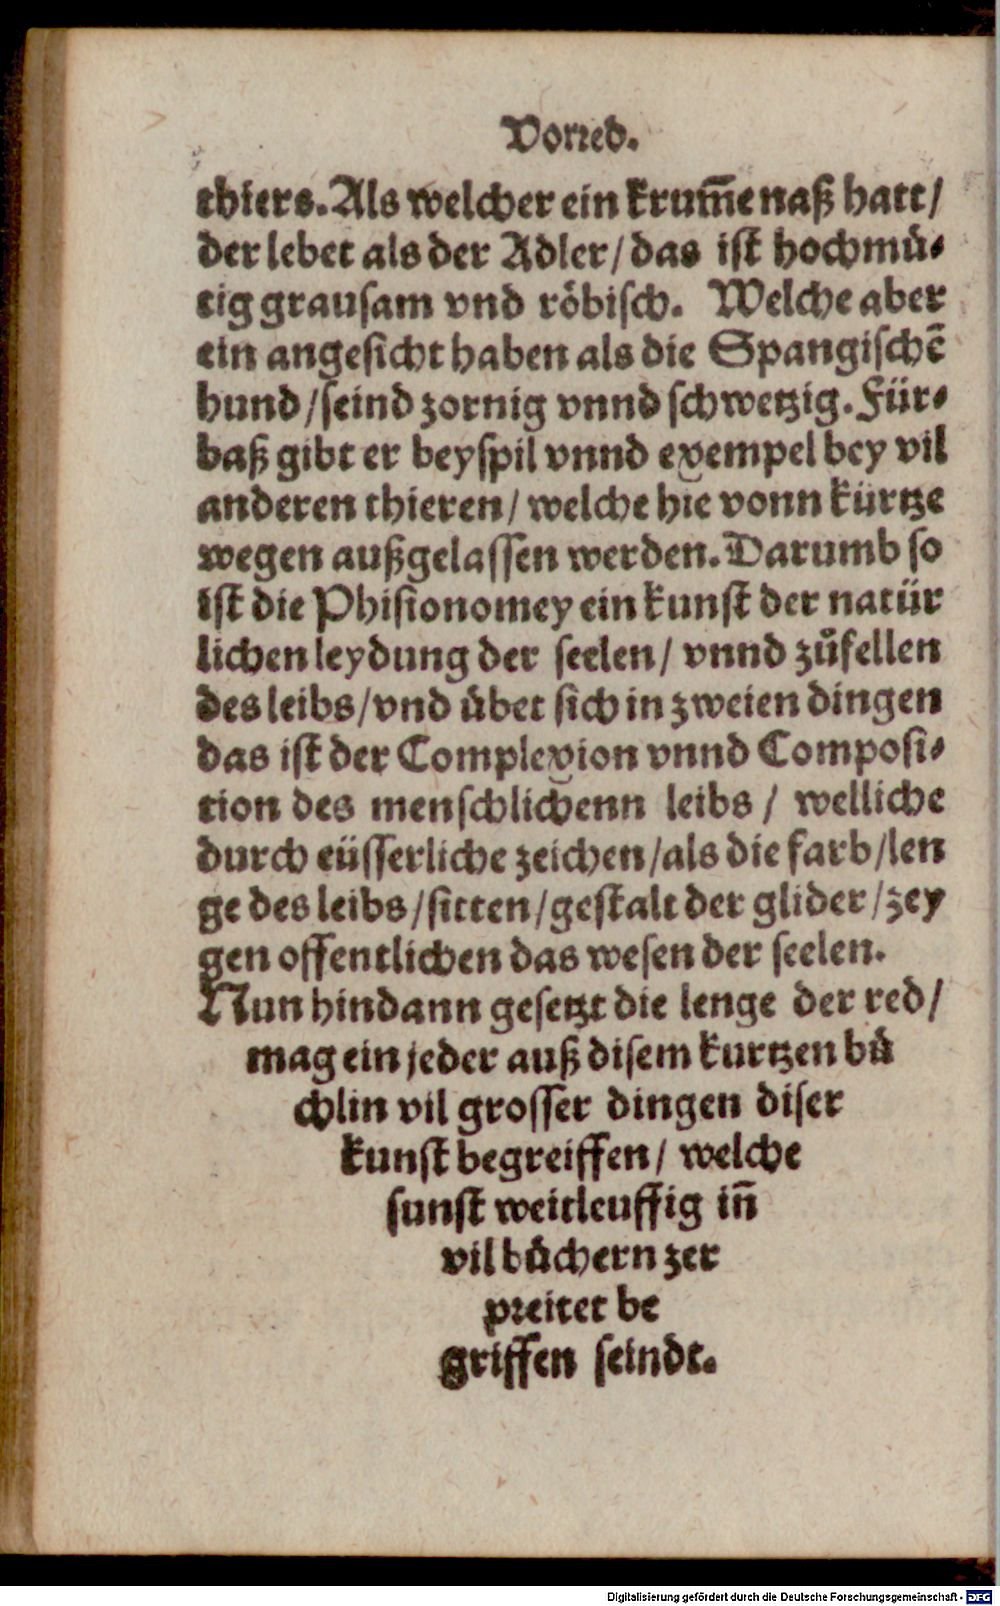 Vorred.
thiers. Als welcher ein krum̃e naß hatt/
der lebet als der Adler/ das ist hochmuͤ-
tig grausam vnd roͤbisch. Welche aber
ein angesicht haben als die Spangischẽ
hund/ seind zornig vnnd schwetzig. Für-
baß gibt er beyspil vnnd exempel bey vil
anderen thieren/ welche hie vonn kürtze
wegen außgelassen werden. Darumb so
ist die Phisionomey ein kunst der natür
lichen leydung der seelen/ vnnd zuͦfellen
des leibs/ vnd uͤbet sich in zweien dingen
das ist der Complexion vnnd Composi-
tion des menschlichenn leibs/ welliche
durch eüsserliche zeichen/ als die farb/ len
ge des leibs/ sitten/ gestalt der glider/ zey
gen offentlichen das wesen der seelen.
Nun hindann gesetzt die lenge der red/
mag ein jeder auß disem kurtzen buͤ
chlin vil grosser dingen diser
kunst begreiffen/ welche
sunst weitleuffig iñ
vil buͤchern zer
preitet be
griffen seindt.
Digitalisierung gefördert durch die Deutsche Forschungsgemeinschaft - DFG